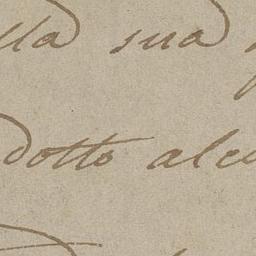 lla sua
dotto alcu